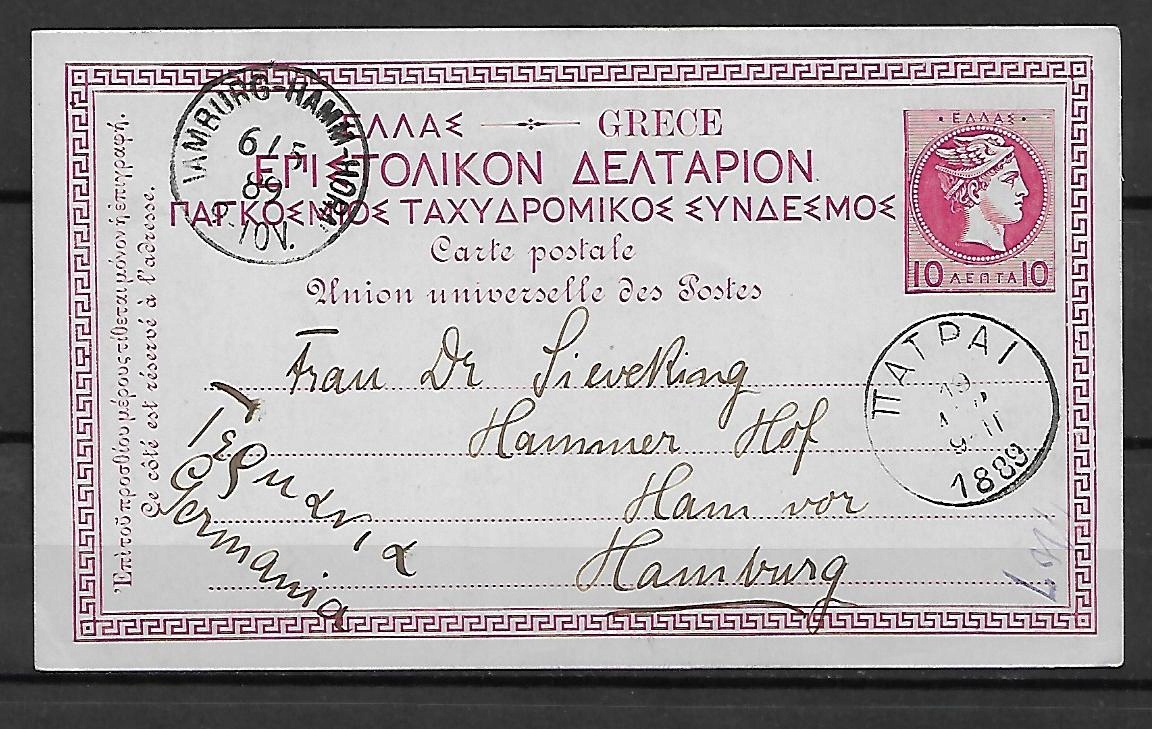 ΕΛΛΑΣ GRECE
ΕΠΙΣΤΟΛΙΚΟΝ ΔΕΛΤΑΡΙΟΝ
ΠΑΓΚΟΣΜΙΟΣ ΤΑΧΥΔΡΟΜΙΚΟΣ ΣΥΝΔΕΣΜΟΣ
Carte postale
Union universelle des Postes
· ΕΛΛΑΣ ·
10 ΛΕΠΤΑ 10
HAMBURG-HAMM-HORN
6/5
89
10V.
ΠΑΤΡΑΙ
19
9-11
1889
Frau Dr Sieveking
Hammer Hof
Ham vor
Hamburg
Γερμανία
Germania
Ἐπὶ τοῦ προσθίου μέρους τίθεται μόνον ἡ ἐπιγραφή.
Ce côté est réservé à l'adresse.